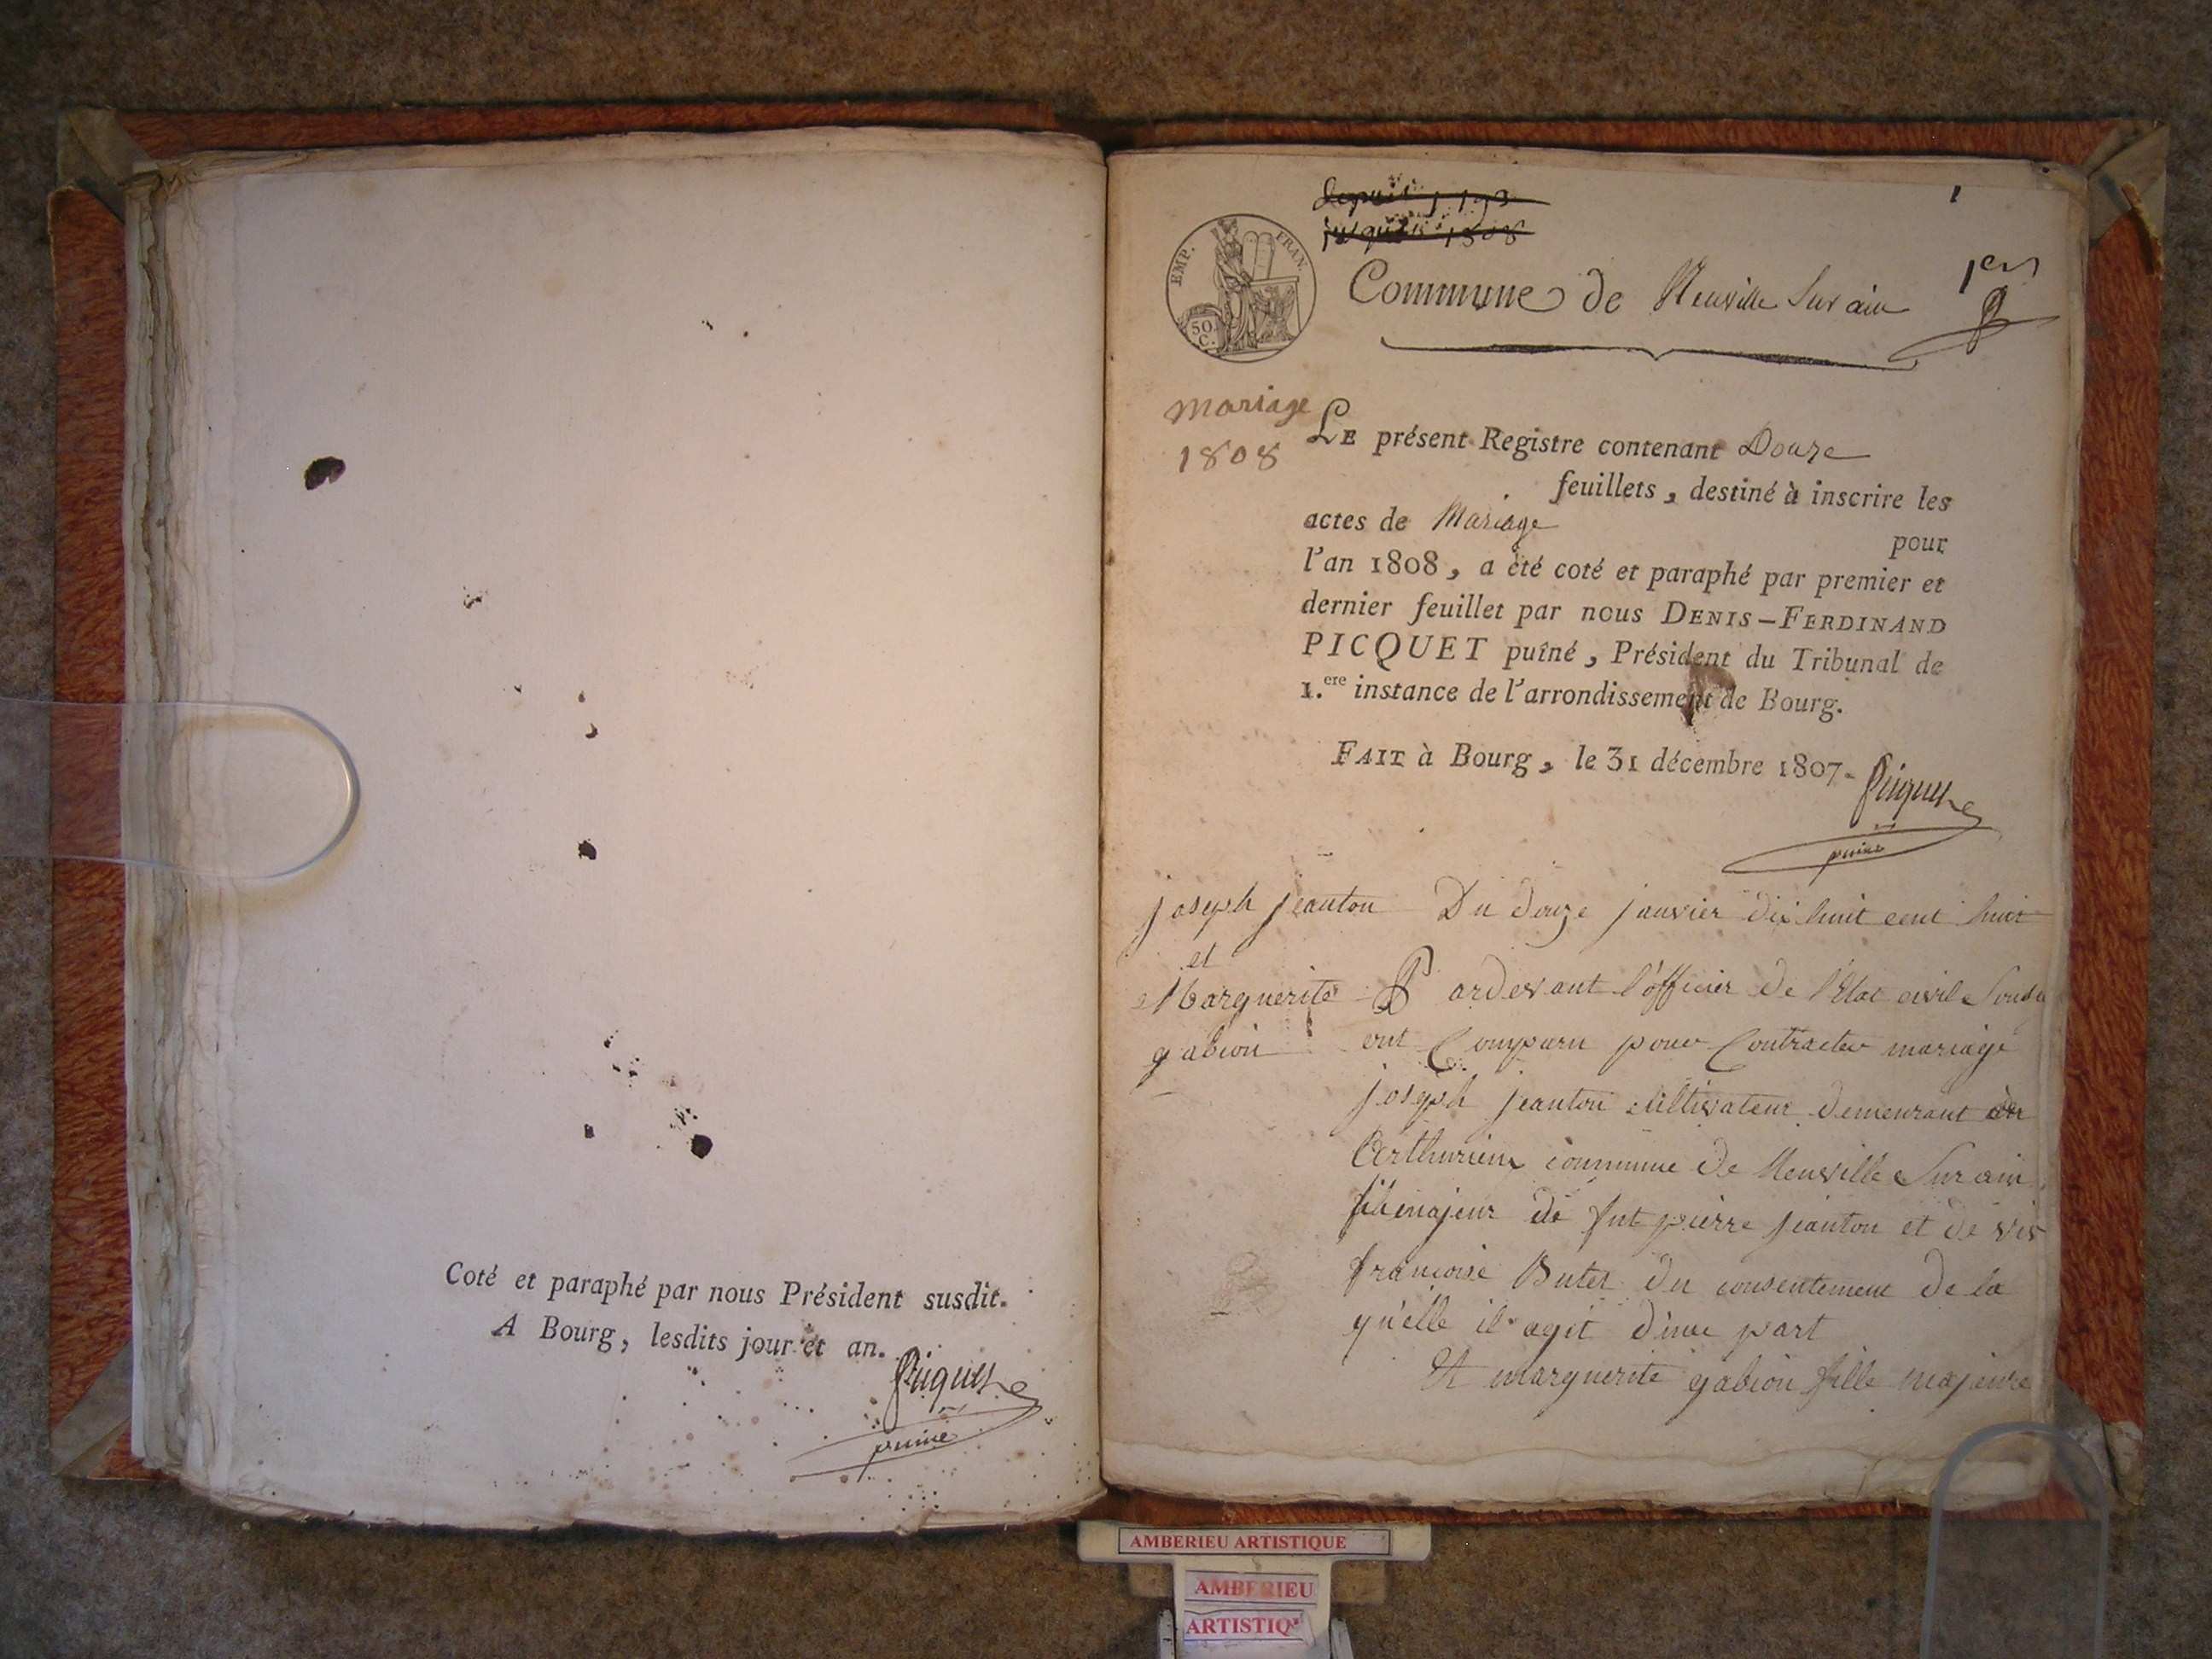 Coté et paraphé par nous Président susdit.
A Bourg, lesdits jour et an.
Picquet
puiné
1
depuis 1793
jusqu'à 1808
EMP. FRAN.
50
C.
Commune de Neuville sur ain
1er
mariage
1808
LE présent Registre contenant Douze
feuillets, destiné à inscrire les
actes de Mariage
pour
l'an 1808, a été coté et paraphé par premier et
dernier feuillet par nous DENIS-FERDINAND
PICQUET puîné, Président du Tribunal de
1.ere instance de l'arrondissement de Bourg.
FAIT à Bourg, le 31 décembre 1807.
Picquet
puiné
joseph jeanton
et
Marguerite
gabion
Du douze janvier dix huit cent huit
Pardevant l'officier de l'Etat civil
ont Comparu pour Contracter mariage
joseph jeanton cultivateur demeurant
commune de Neuville Sur ain
fils majeur de fut pierre jeanton et de
francoise Buter du consentement de la
qu'elle il agit d'une part
Et marguerite gabion fille majeure
AMBERIEU ARTISTIQUE
AMBERIEU
ARTISTIQ